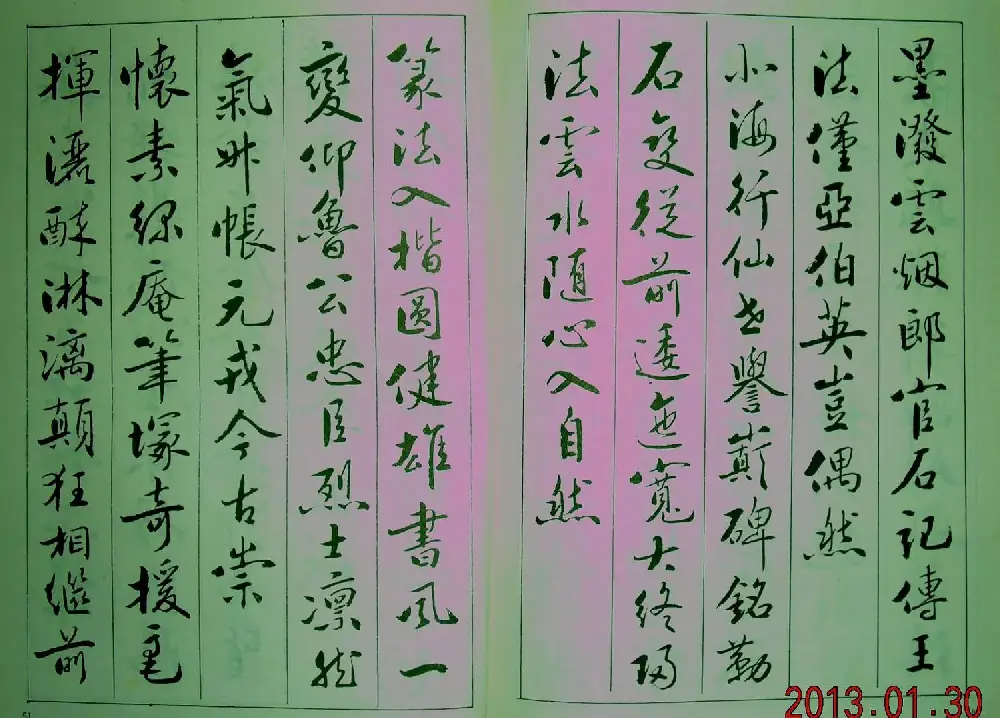 墨潑雲烟郎官石記傳王
法僅亞伯英豈偶然
北海行仙世譽巔碑銘勒
石夐從前逶迤寬大終歸
法雲水随心入自然
篆法入楷圓健雄書風一
變仰魯公忠臣烈士凛然
氣升帳元戎今古崇
懷素綠庵筆塚奇援毫
揮灑酔淋漓顛狂相繼前
51
2013.01.30